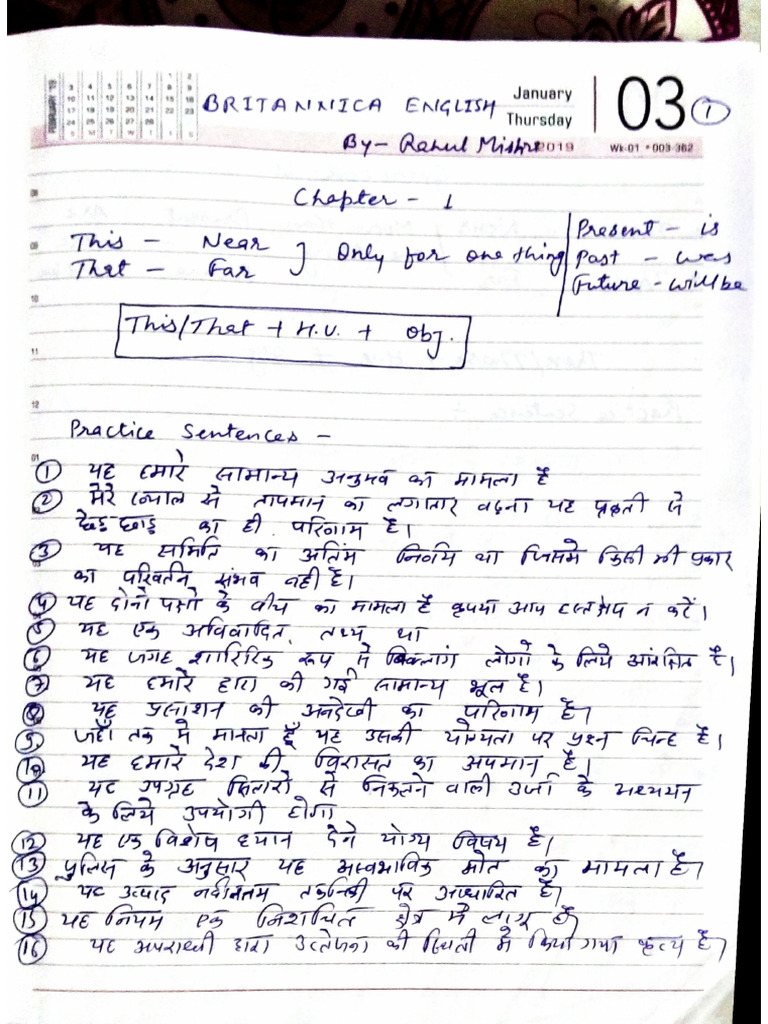 BRITANNICA ENGLISH January 03 1
Thursday
By- Rahul Mishra 2019 Wk-01 • 003-362
FEBRUARY '19
Chapter - 1
This - Near } Only for one thing
That - Far
Present - is
Past - was
Future - will be
This/That + H.V. + Obj.
Practice Sentences -
① यह हमारे सामान्य अनुभव का मामला है
② मेरे ख्याल से तापमान का लगातार बढ़ना यह प्रकृती से
छेड़छाड़ का ही परिणाम है।
③ यह समिति का अंतिम निर्णय था जिसमे किसी भी प्रकार
का परिवर्तन संभव नही है।
④ यह दोनो पक्षो के बीच का मामला है कृपया आप हस्तक्षेप न करें।
⑤ यह एक अविवादित तथ्य था
⑥ यह जगह शारिरिक रूप से विकलांग लोगों के लिये आंरक्षित है।
⑦ यह हमारे द्वारा की गई सामान्य भूल है।
⑧ यह प्रसाशन की अनदेखी का परिणाम है।
⑨ जहाँ तक मे मानता हूँ यह उसकी योग्यता पर प्रश्न चिन्ह है।
⑩ यह हमारे देश की विरासत का अपमान है।
⑪ यह उपग्रह सितारो से निकलने वाली उर्जा के अध्ययन
के लिये उपयोगी होगा
⑫ यह एक विशेष ध्यान देने योग्य विषय है।
⑬ पुलिस के अनुसार यह अस्वभाविक मौत का मामला है।
⑭ यह उत्पाद नवीनतम तकनिकी पर आधारित है।
⑮ यह नियम एक निशचित क्षेत्र मे लागू है
⑯ यह अपराधी द्वारा उत्तेजना की स्थिती मे किया गया कृत्य है।